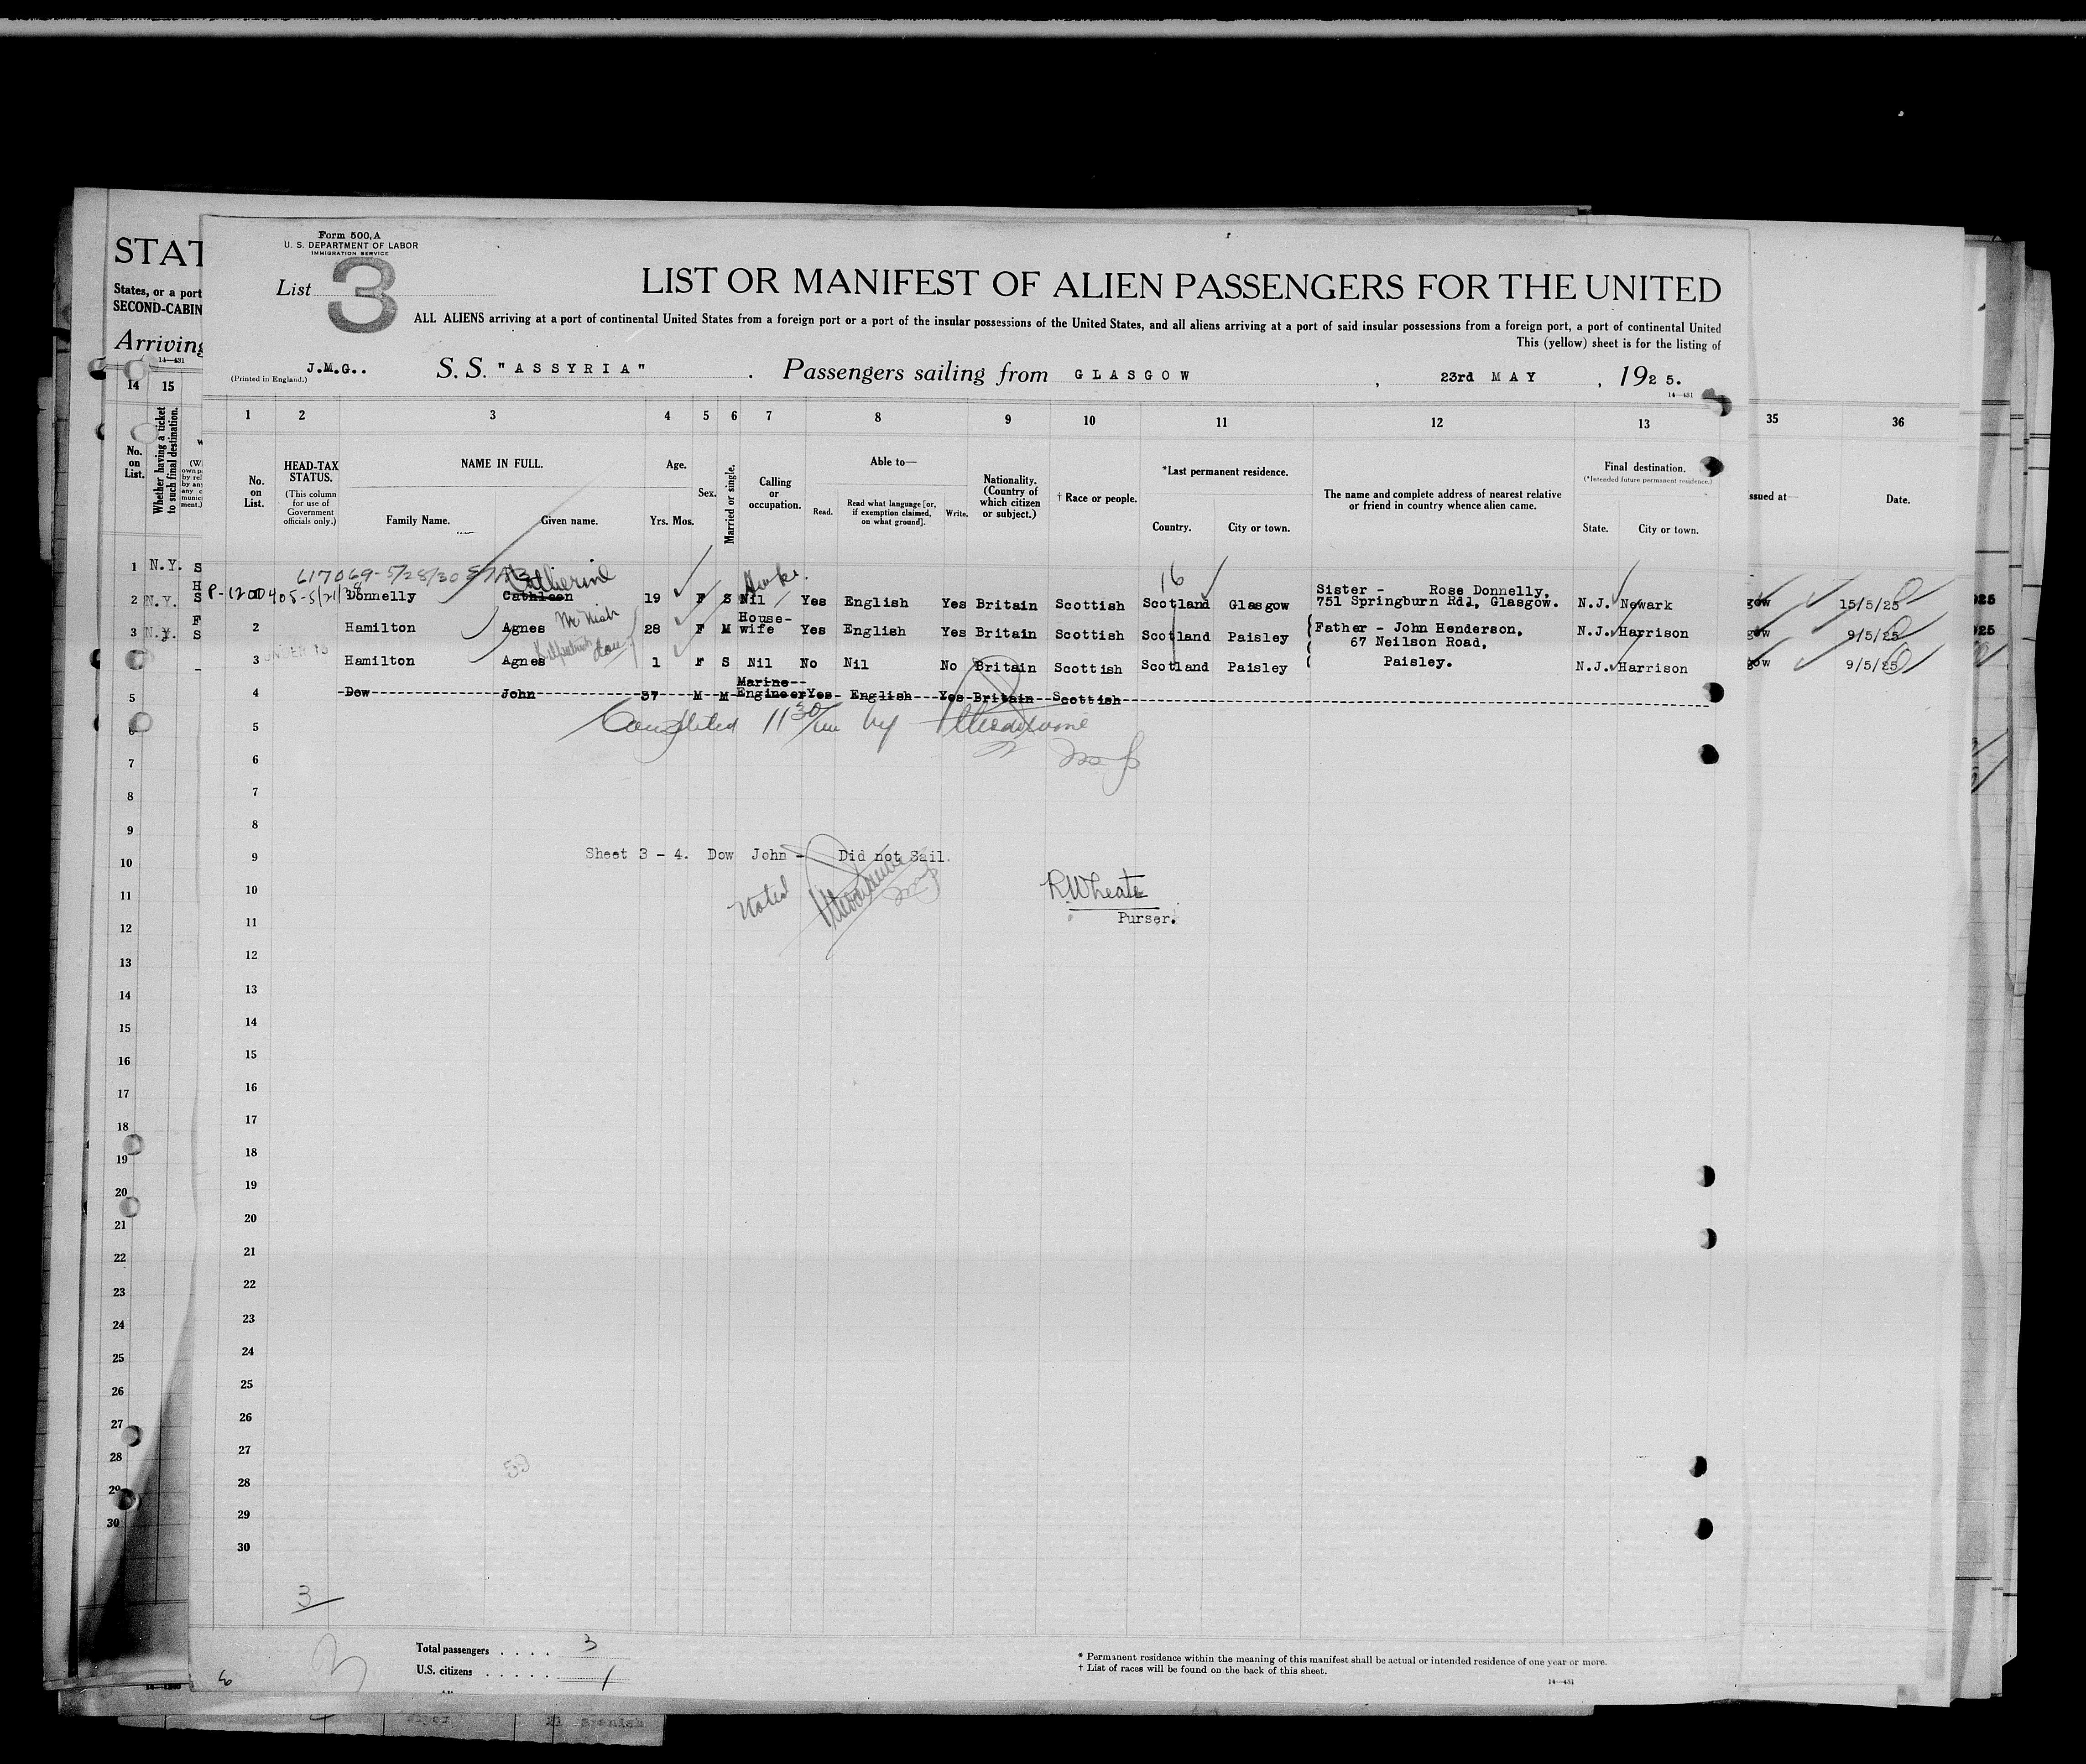 Form 500,A
U. S. DEPARTMENT OF LABOR
IMMIGRATION SERVICE
List 3
LIST OR MANIFEST OF ALIEN PASSENGERS FOR THE UNITED
ALL ALIENS arriving at a port of continental United States from a foreign port or a port of the insular possessions of the United States, and all aliens arriving at a port of said insular possessions from a foreign port, a port of continental United
This (yellow) sheet is for the listing of
(Printed in England.) J.M.G.. S. S. "ASSYRIA" . Passengers sailing from GLASGOW , 23rd MAY , 1925.
14—431
STAT
States, or a port
SECOND-CABIN
Arriving
14—431
14 15
No. on List.
Whether having a ticket to such final destination.
1 2 3 4 5 6 7 8 9 10 11 12 13
35 36
No. on List.
HEAD-TAX STATUS.
(This column for use of Government officials only.)
NAME IN FULL.
Family Name. Given name.
Age.
Yrs. Mos.
Sex.
Married or single.
Calling or occupation.
Able to—
Read. Read what language [or, if exemption claimed, on what ground]. Write.
Nationality. (Country of which citizen or subject.)
† Race or people.
*Last permanent residence.
Country. City or town.
The name and complete address of nearest relative or friend in country whence alien came.
Final destination.
(*Intended future permanent residence.)
State. City or town.
ssued at—
Date.
1 N.Y. S
2 N.Y. S
3 N.Y. S
617069-5/28/30 Catherine
16
P-1200405-5/21/38 Donnelly Cathleen 19 F S Nil Yes English Yes Britain Scottish Scotland Glasgow Sister - Rose Donnelly, 751 Springburn Rd., Glasgow. N.J. Newark gow 15/5/25
2 Hamilton Agnes McNish 28 F M House-wife Yes English Yes Britain Scottish Scotland Paisley Father - John Henderson, 67 Neilson Road, N.J. Harrison gow 9/5/25
UNDER 16
3 Hamilton Agnes Kilpatrick 1 F S Nil No Nil No Britain Scottish Scotland Paisley Paisley. N.J. Harrison gow 9/5/25
4 Dow John 37 M M Marine Engineer Yes English Yes Britain Scottish
5
6
7
8
9
Sheet 3 - 4. Dow John - Did not Sail.
Noted
10
R Wheate
Purser.
11
12
13
14
15
16
17
18
19
20
21
22
23
24
25
26
27
59
28
29
30
3
Total passengers . . . . 3
U.S. citizens . . . . . 1
* Permanent residence within the meaning of this manifest shall be actual or intended residence of one year or more.
† List of races will be found on the back of this sheet.
14—431
Spanish